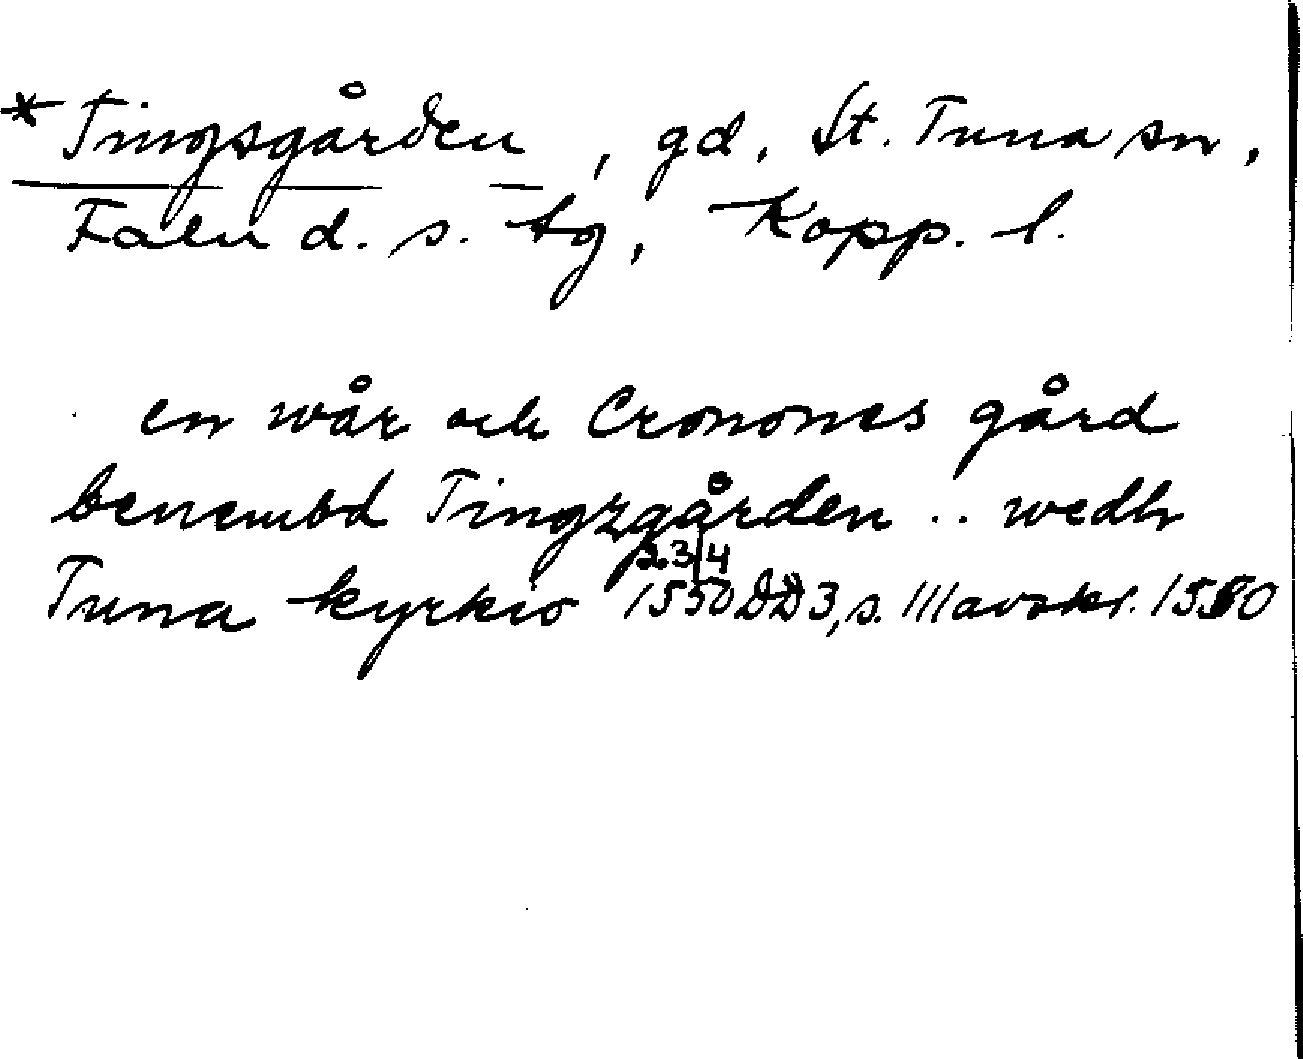 * Tingsgården, gd, St. Tuna sn,
Falu d. s. tg, Kopp. l.
en wår och Cronones gård
benembd Tingzgården .. wedh
23/4
Tuna kyrkio 1550 DD3, s. 111 avskr. 1580